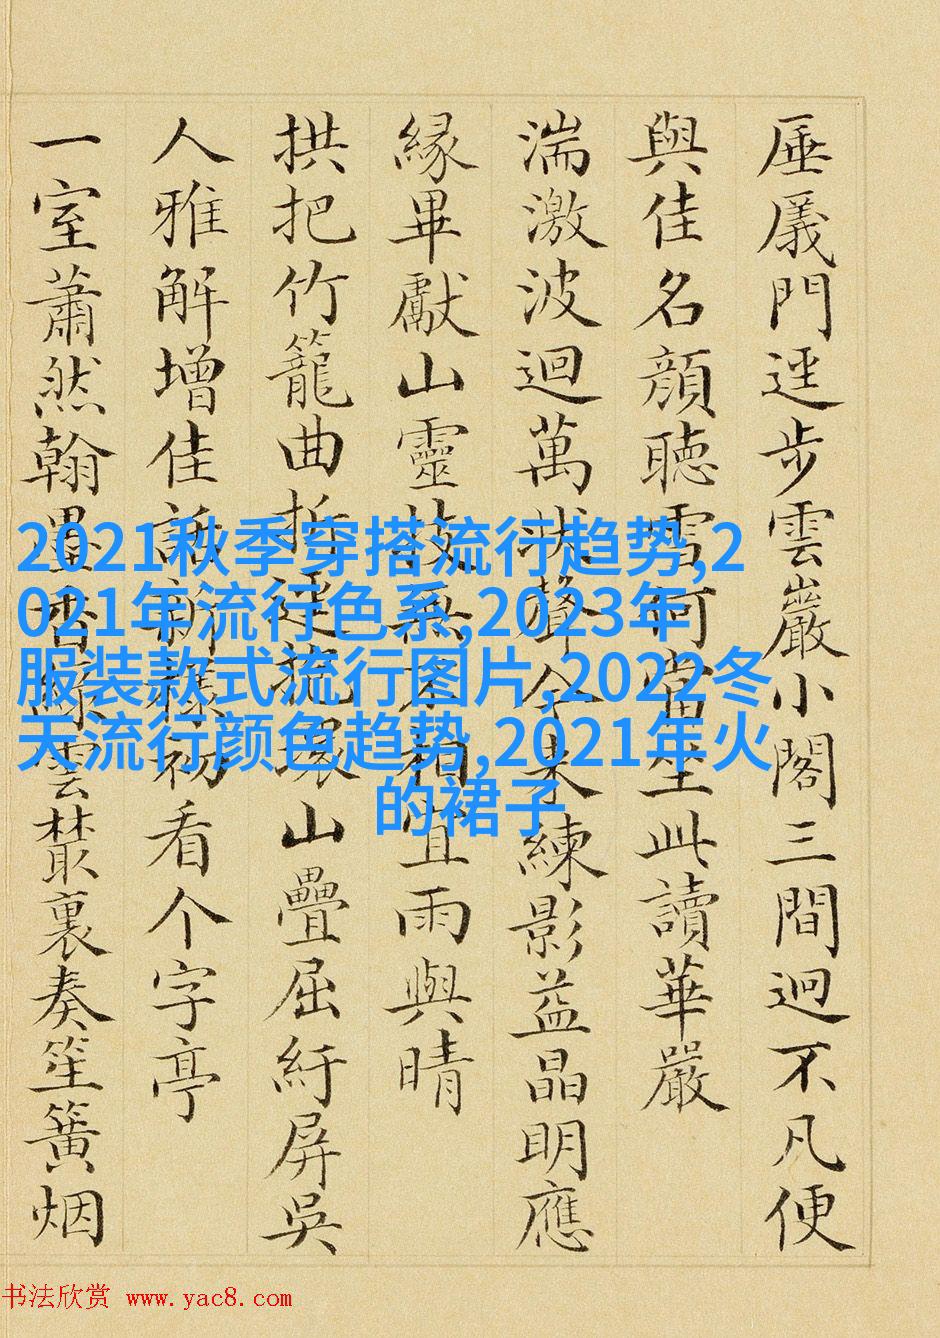 厜㕒門迳步雲巖小閣三間迥不凡便
與佳名顔聽雪何當坐此讀華嚴
湍激波迴萬狀聲今来練影益晶明應
緣畢獻山靈故無不相宜雨與晴
拱把竹籠曲折環山疊屈紆屏吳
人雅解增佳話新樣初看个字亭
一室蕭然翰墨香綠雲藂裏奏笙簧烟
2021秋季穿搭流行趋势,2
021年流行色系,2023年
服装款式流行图片,2022冬
天流行颜色趋势,2021年火
的裙子
书法欣赏 www.yac8.com